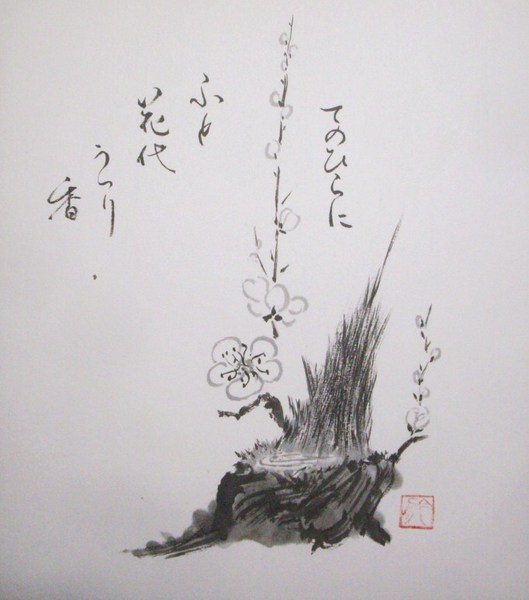 てのひらに
ふと
花代
うつり
香